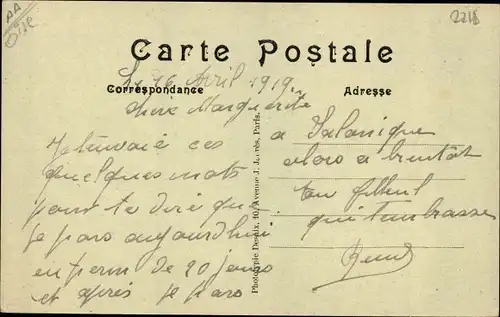 AA
Oise
2218
Carte Postale
Le 16 Avril 1919
Correspondance
Adresse
Chère Marguerite
Je t'envoie ces
quelques mots
pour te dire que
je pars aujourdhui
en perm de 20 jours
et après je pars
a Salonique
alors a bientôt
Ton filleul
qui t'embrasse
René
Phototypie Desaix, 10, Avenue J. Jaurès, Paris.